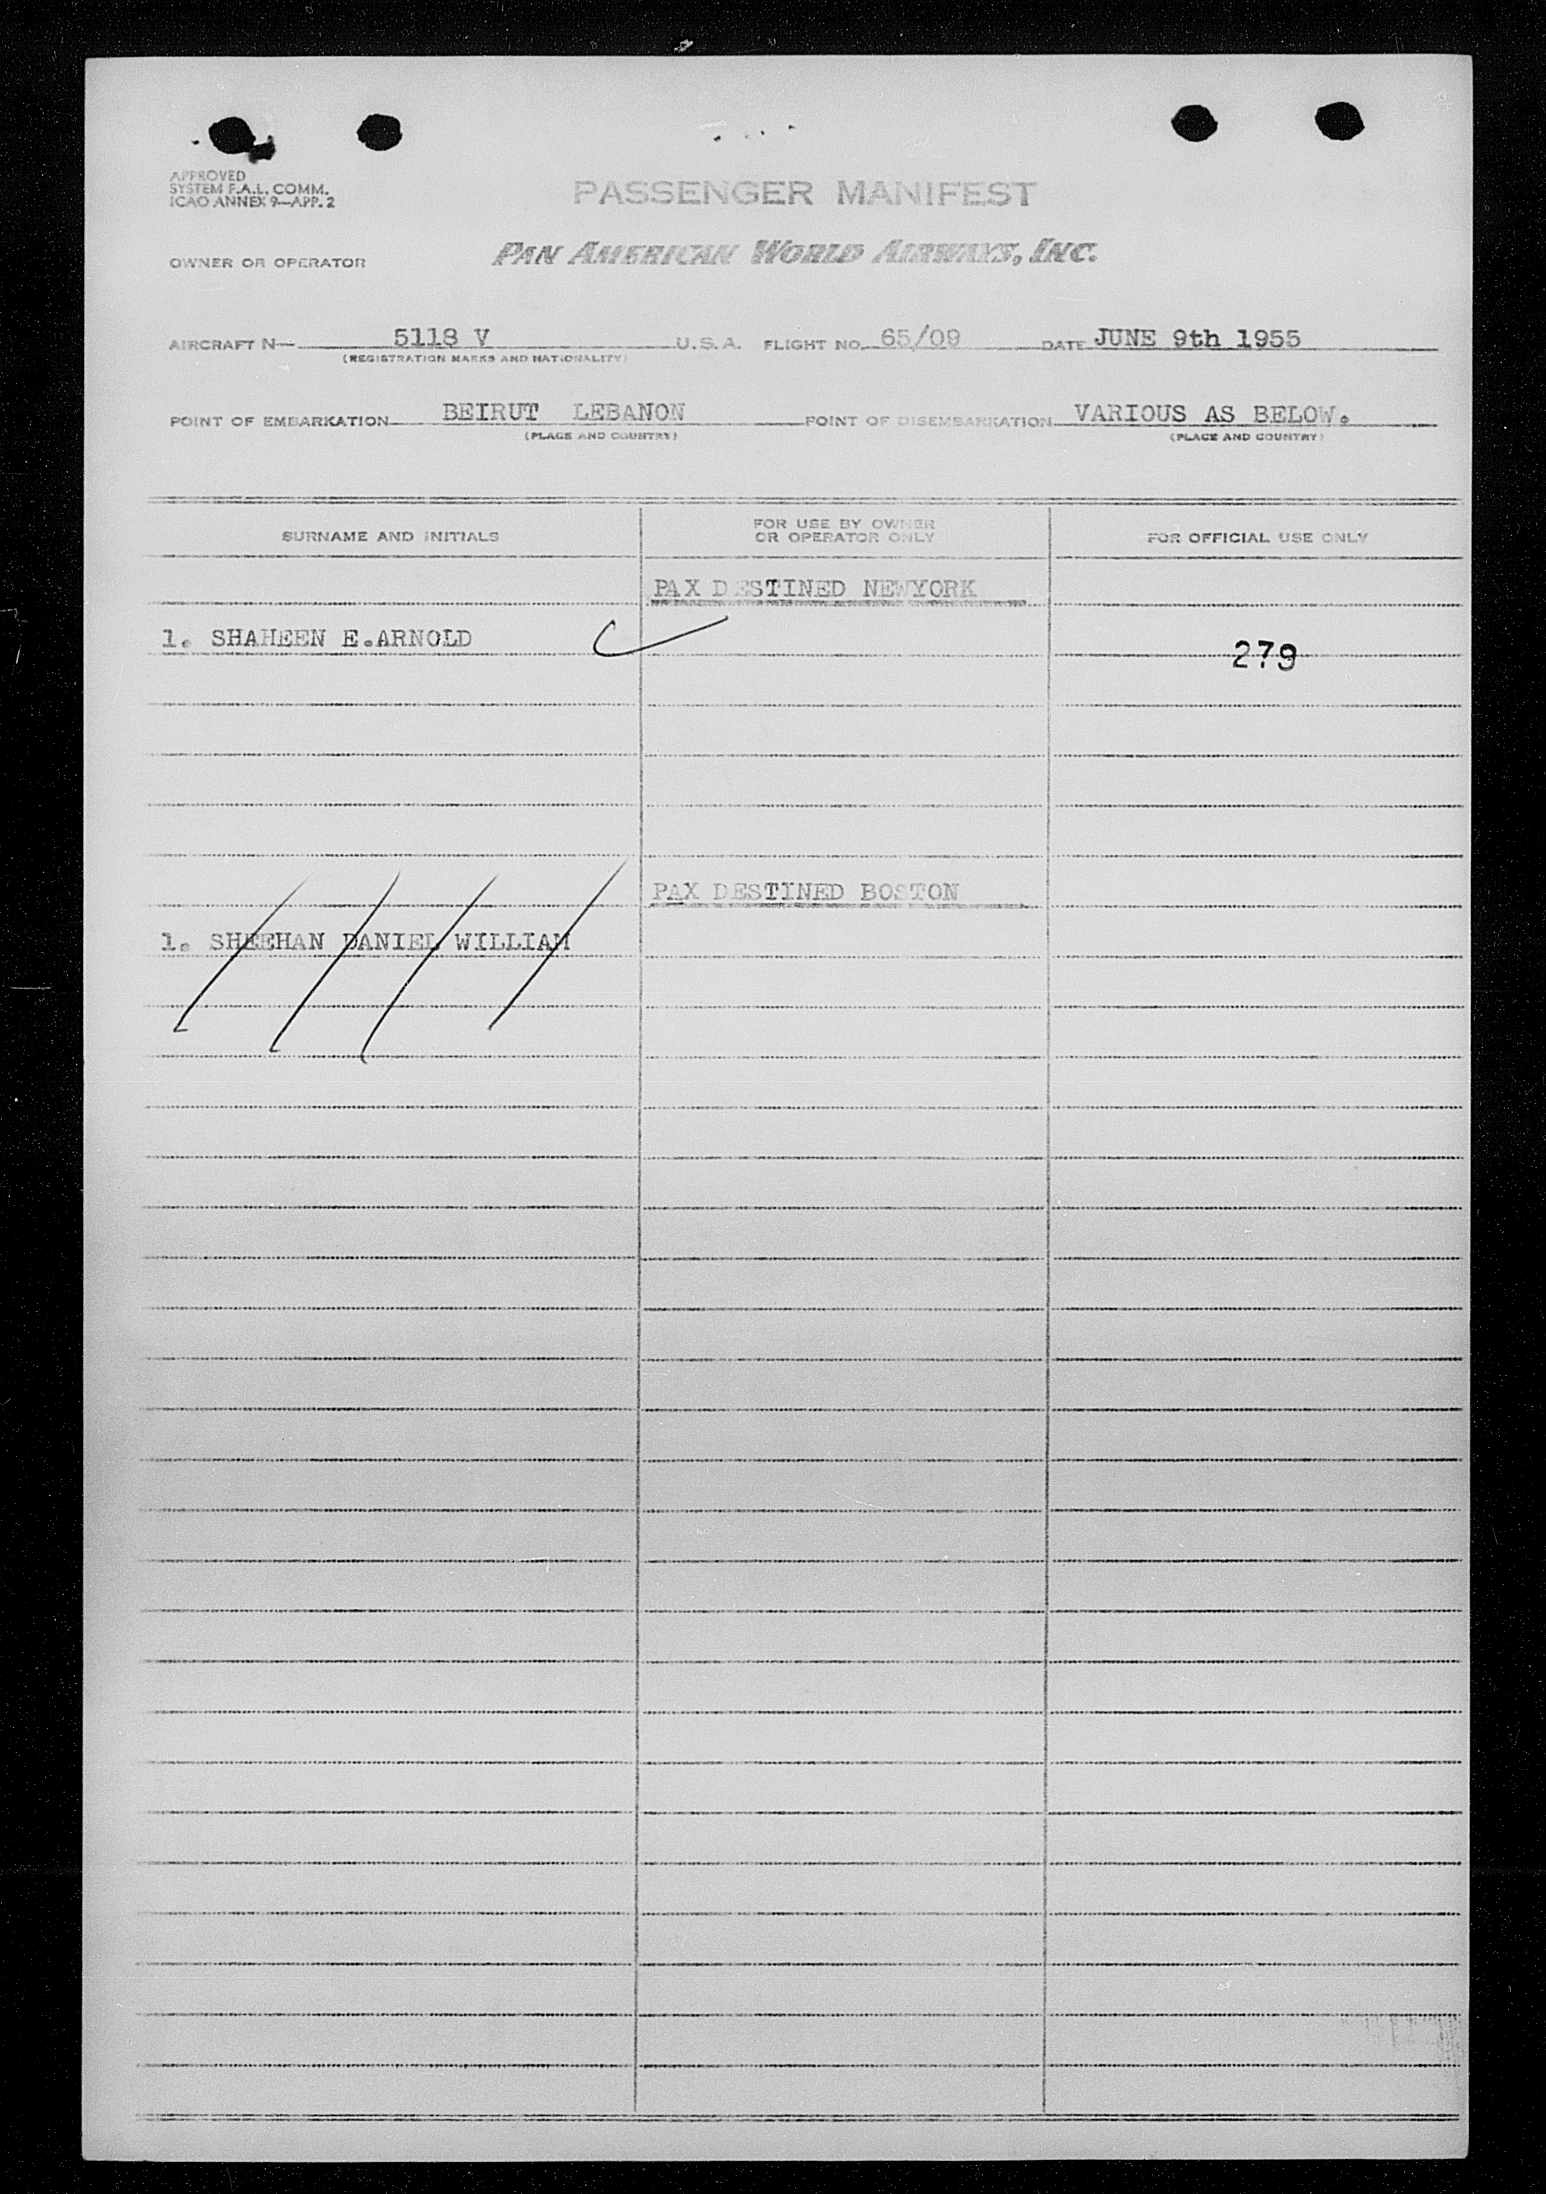 APPROVED
SYSTEM F.A.L. COMM.
ICAO ANNEX 9—APP. 2
PASSENGER MANIFEST
OWNER OR OPERATOR PAN AMERICAN WORLD AIRWAYS, INC.
AIRCRAFT N— 5118 V U.S.A. FLIGHT NO. 65/09 DATE JUNE 9th 1955
(REGISTRATION MARKS AND NATIONALITY)
POINT OF EMBARKATION BEIRUT LEBANON POINT OF DISEMBARKATION VARIOUS AS BELOW.
(PLACE AND COUNTRY) (PLACE AND COUNTRY)
SURNAME AND INITIALS FOR USE BY OWNER OR OPERATOR ONLY FOR OFFICIAL USE ONLY
PAX DESTINED NEWYORK
1. SHAHEEN E.ARNOLD 279
PAX DESTINED BOSTON
1. SHEEHAN DANIEL WILLIAM